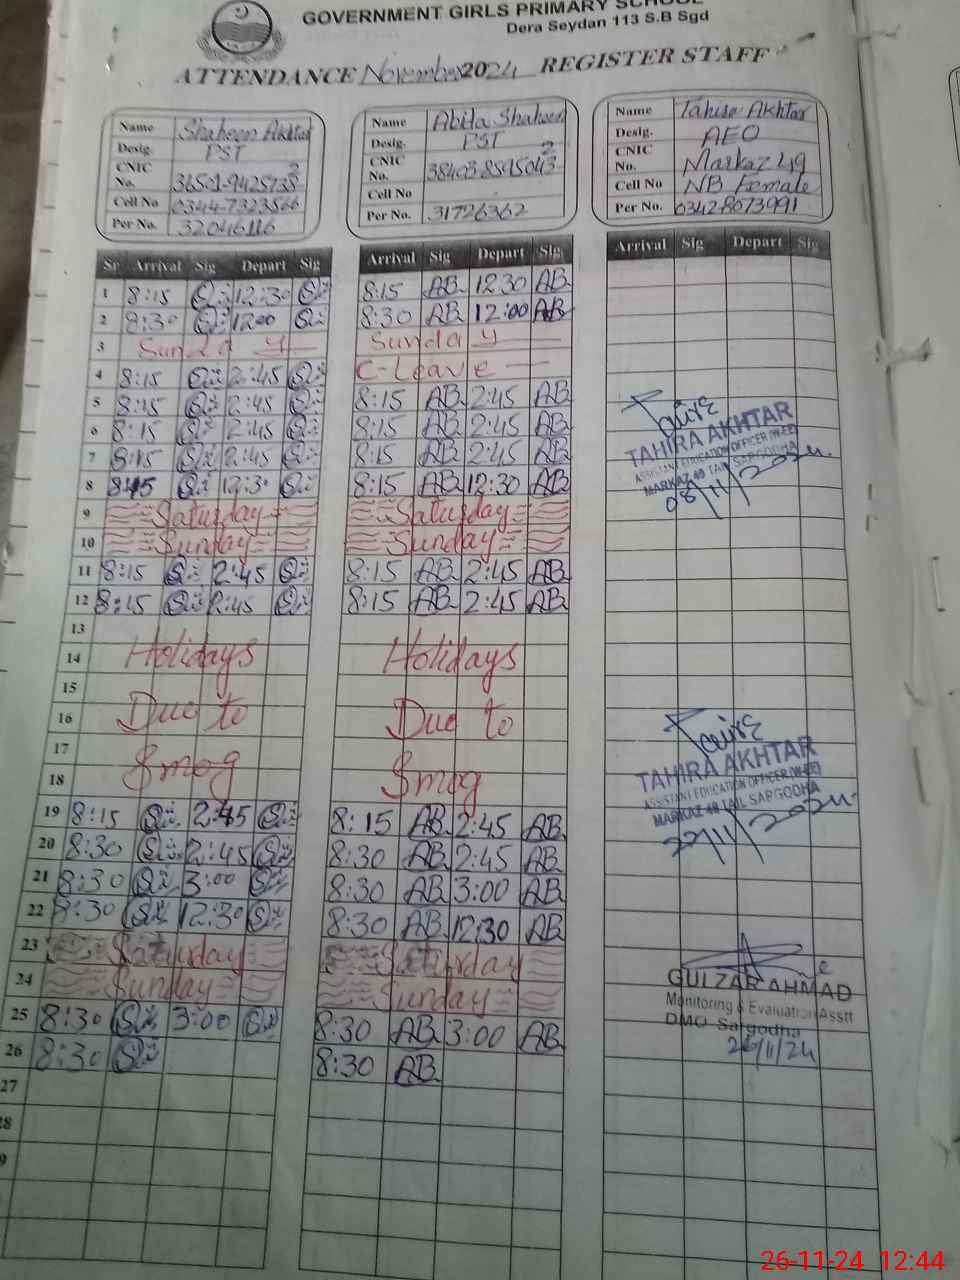 GOVERNMENT GIRLS PRIMARY SCHOOL
Dera Seydan 113 S.B Sgd
ATTENDANCE November 2024 REGISTER STAFF
Name Shaheen Akhtar
Desig. PST
CNIC No.
Cell No 0344-7323566
Per No. 32046116
Name Abida Shaheen
Desig. PST
CNIC No.
Cell No
Per No. 31726362
Name Tahira Akhtar
Desig. AEO
CNIC No. Markaz 49
Cell No NB Female
Per No. 03428673991
Sr Arrival Sig Depart Sig Arrival Sig Depart Sig Arrival Sig Depart Sig
1 8:15 12:30 8:15 AB 12:30 AB
2 8:30 12:00 8:30 AB 12:00 AB
3 Sunday Sunday
4 8:15 2:45 C-Leave
5 8:15 2:45 8:15 AB 2:45 AB
6 8:15 2:45 8:15 AB 2:45 AB
7 8:15 2:45 8:15 AB 2:45 AB
8 8:15 12:30 8:15 AB 12:30 AB
TAHIRA AKHTAR
ASSISTANT EDUCATION OFFICER (W-EE)
MARKAZ 49 TAIL SARGODHA
08/11/2024
9 Saturday Saturday
10 Sunday Sunday
11 8:15 2:45 8:15 AB 2:45 AB
12 8:15 2:45 8:15 AB 2:45 AB
13
14 Holidays Holidays
15
16 Due to Due to
17
18 Smog Smog
TAHIRA AKHTAR
ASSISTANT EDUCATION OFFICER (W-EE)
MARKAZ 49 TAIL SARGODHA
22/11/2024
19 8:15 2:45 8:15 AB 2:45 AB
20 8:30 2:45 8:30 AB 2:45 AB
21 8:30 3:00 8:30 AB 3:00 AB
22 8:30 12:30 8:30 AB 12:30 AB
23 Saturday Saturday
24 Sunday Sunday
GULZAR AHMAD
Monitoring & Evaluation Asstt
DMO Sargodha
26/11/24
25 8:30 3:00 8:30 AB 3:00 AB
26 8:30 8:30 AB
27
28
9
26-11-24 12:44